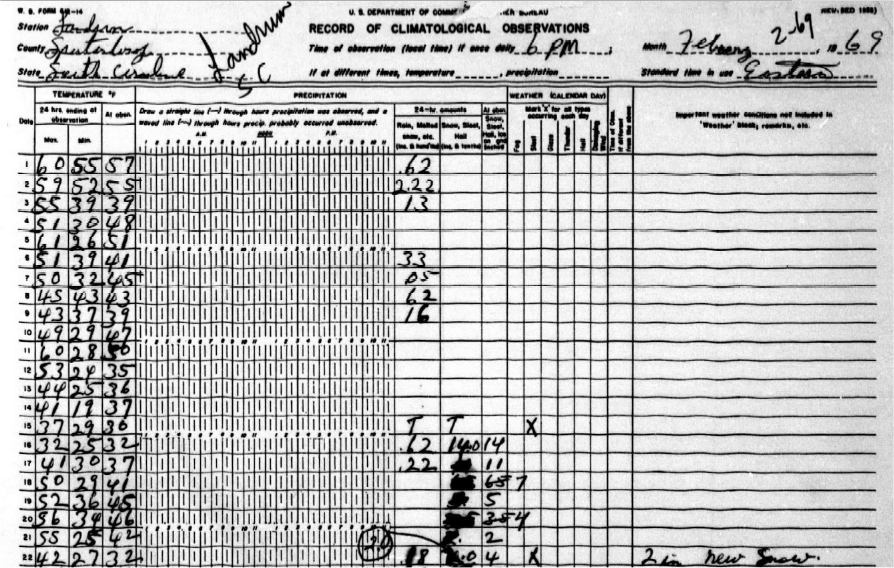 W. B. FORM 612-14 U. S. DEPARTMENT OF COMMERCE WEATHER BUREAU (REVISED 1953)
Station Landrum Landrum SC RECORD OF CLIMATOLOGICAL OBSERVATIONS 2-69
County Spartanburg Time of observation (local time) if once daily 6 PM Month February 1969
State South Carolina If at different times, temperature , precipitation Standard time in use Eastern
TEMPERATURE °F PRECIPITATION WEATHER (CALENDAR DAY)
Date 24 hrs. ending at observation At obsn. Draw a straight line (—) through hours precipitation was observed, and a waved line (~) through hours precip. probably occurred unobserved. 24-hr. amounts At obsn. Mark 'X' for all types occurring each day Important weather conditions not included in 'Weather' block; remarks, etc.
Max. Min. A.M. NOON P.M. Rain, Melted snow, etc. (ins. & hundths) Snow, Sleet, Hail (ins. & tenths) Snow, Sleet, Hail, Ice on ground Fog Sleet Glaze Thunder Hail Damaging Wind
1 2 3 4 5 6 7 8 9 10 11 1 2 3 4 5 6 7 8 9 10 11
1 60 55 57 .62
2 59 52 55 2.22
3 55 39 39 13
4 51 30 48
5 61 26 51
6 51 39 41 33
7 50 32 45 .05
8 45 43 43 62
9 43 37 39 16
10 49 29 47
11 60 28 50
12 53 24 35
13 44 25 36
14 41 19 37
15 37 29 30 T T X
16 32 25 32 .62 14.0 14
17 41 30 37 .22 11
18 50 29 41 7
19 52 36 45 5
20 56 34 46 4
21 55 25 42 2
22 42 27 32 2.0 .18 4 X 2 in new snow.